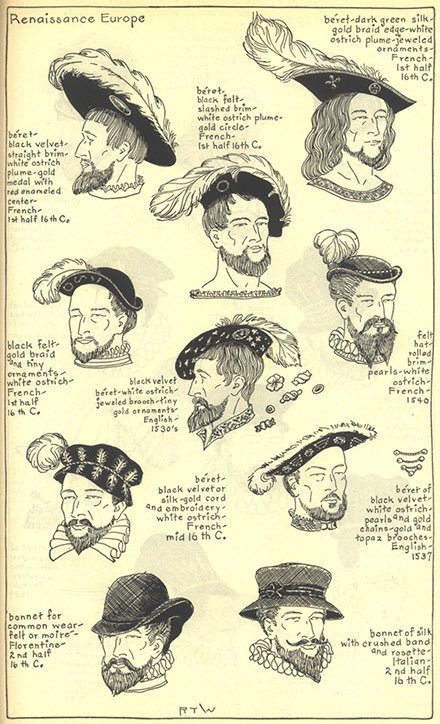 Renaissance Europe
béret-dark green silk-
gold braid edge-white
ostrich plume-jeweled
ornaments-
French-
1st half
16th C.
béret-
black felt-
slashed brim-
white ostrich plume-
gold circle-
French-
1st half 16th C.
béret-
black velvet-
straight brim-
white ostrich
plume-gold
medal with
red enameled
center-
French-
1st half 16th C.
black felt-
gold braid
and tiny
ornaments-
white ostrich-
French-
1st half
16th C.
felt
hat-
rolled
brim-
pearls-white
ostrich-
French-
1540
black velvet
béret-white ostrich-
jeweled brooch-tiny
gold ornaments-
English-
1530's
béret-
black velvet or
silk-gold cord
and embroidery-
white ostrich-
French-
mid 16th C.
béret of
black velvet-
white ostrich-
pearls and gold
chains-gold and
topaz brooches-
English-
1537
bonnet for
common wear-
felt or moire-
Florentine-
2nd half
16th C.
bonnet of silk
with crushed band
and rosette-
Italian-
2nd half
16th C.
RTW